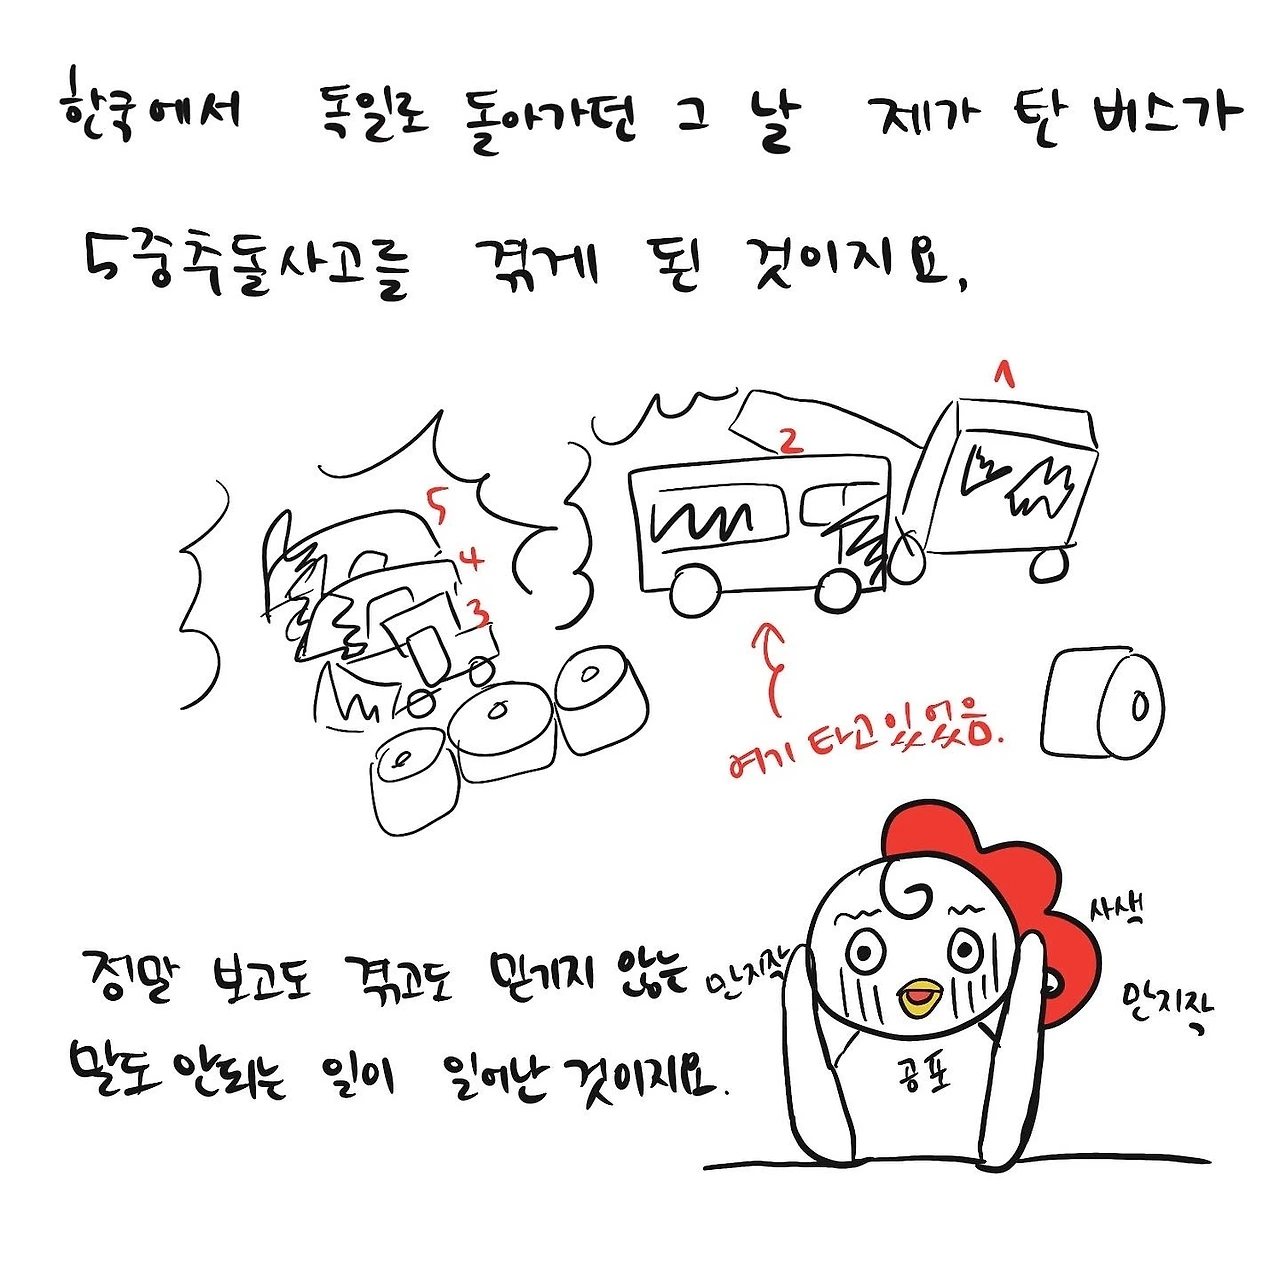 한국에서 독일로 돌아가던 그 날 제가 탄 버스가
5중추돌사고를 겪게 된 것이지요,
1
2
5
4
3
여기 타고 있었음.
정말 보고도 겪고도 믿기지 않는
말도 안되는 일이 일어난 것이지요.
만지작
사색
만지작
공포